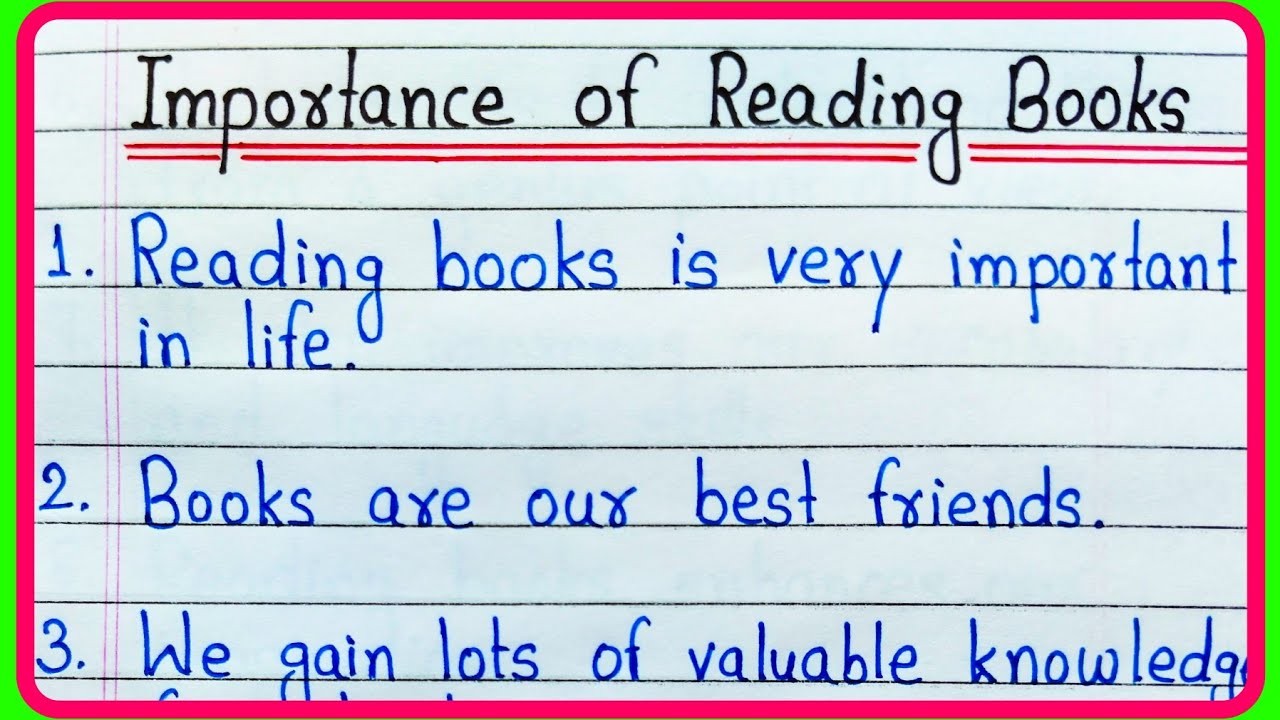 Importance of Reading Books
1. Reading books is very important
in life.
2. Books are our best friends.
3. We gain lots of valuable knowledg